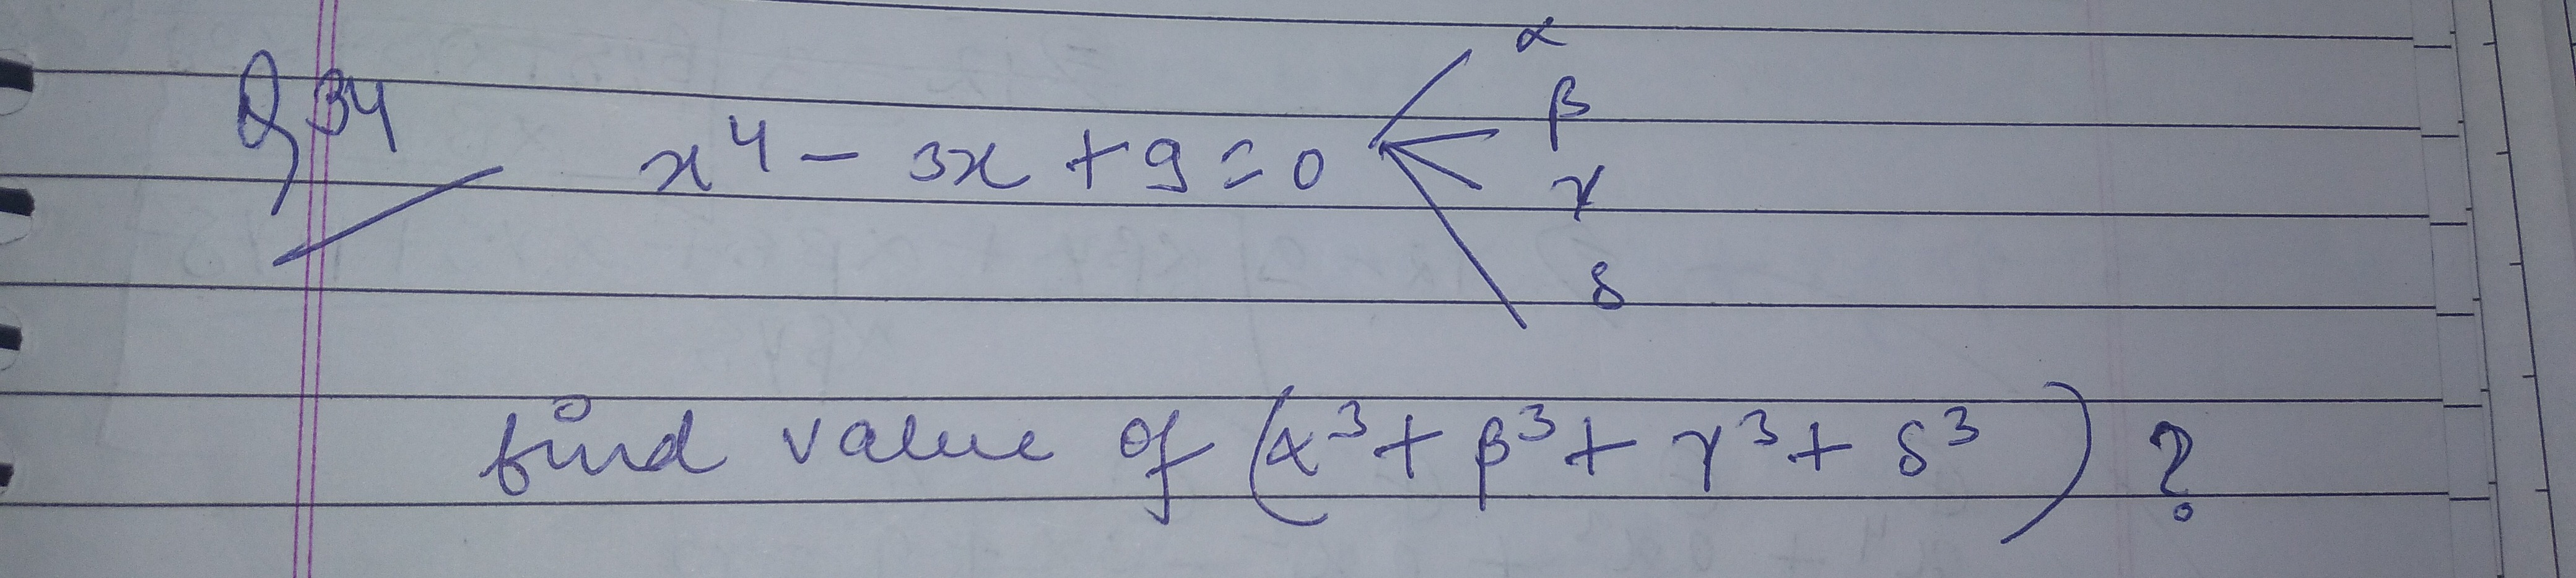 Q34 x⁴ - 3x + 9 = 0
α
β
γ
δ
find value of (α³ + β³ + γ³ + δ³) ?